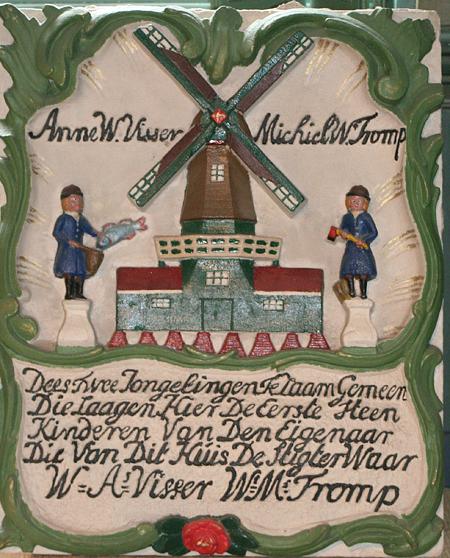 Anne W. Visser Michiel W. Tromp
Dees Twee Jongelingen Te Zaam Gemeen
Die Laagen Hier De Eerste Steen
Kinderen Van Den Eigenaar
Die Van Dit Huis De Stigter Waar
W= A: Visser W: M: Tromp